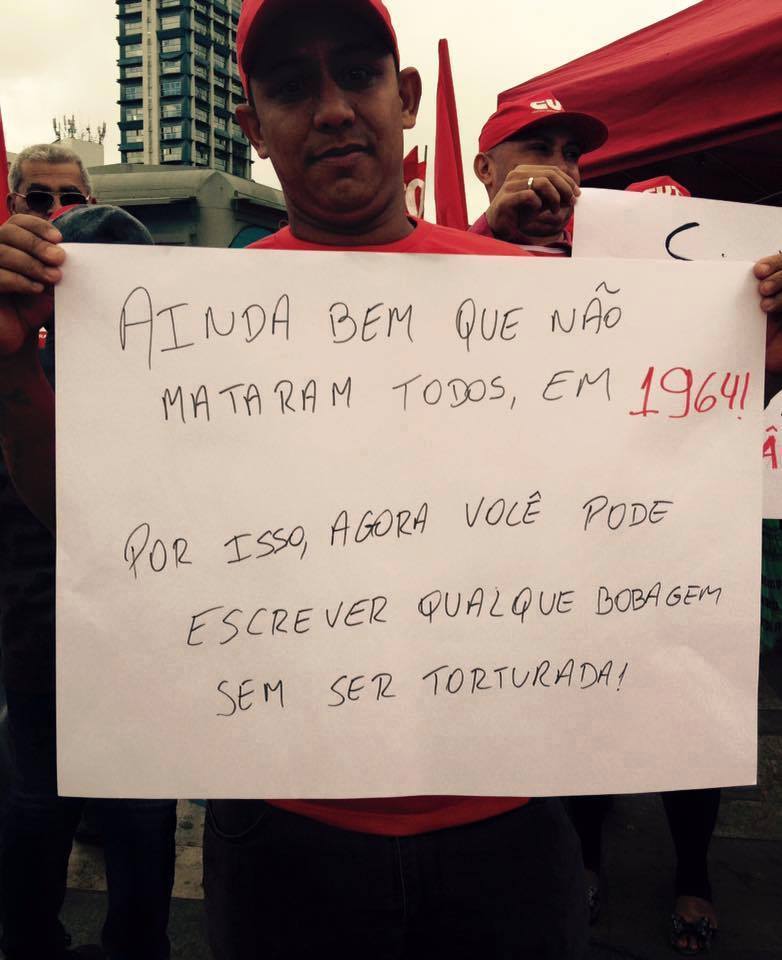 CUT
AINDA BEM QUE NÃO
MATARAM TODOS, EM 1964!
POR ISSO, AGORA VOCÊ PODE
ESCREVER QUALQUE BOBAGEM
SEM SER TORTURADA!